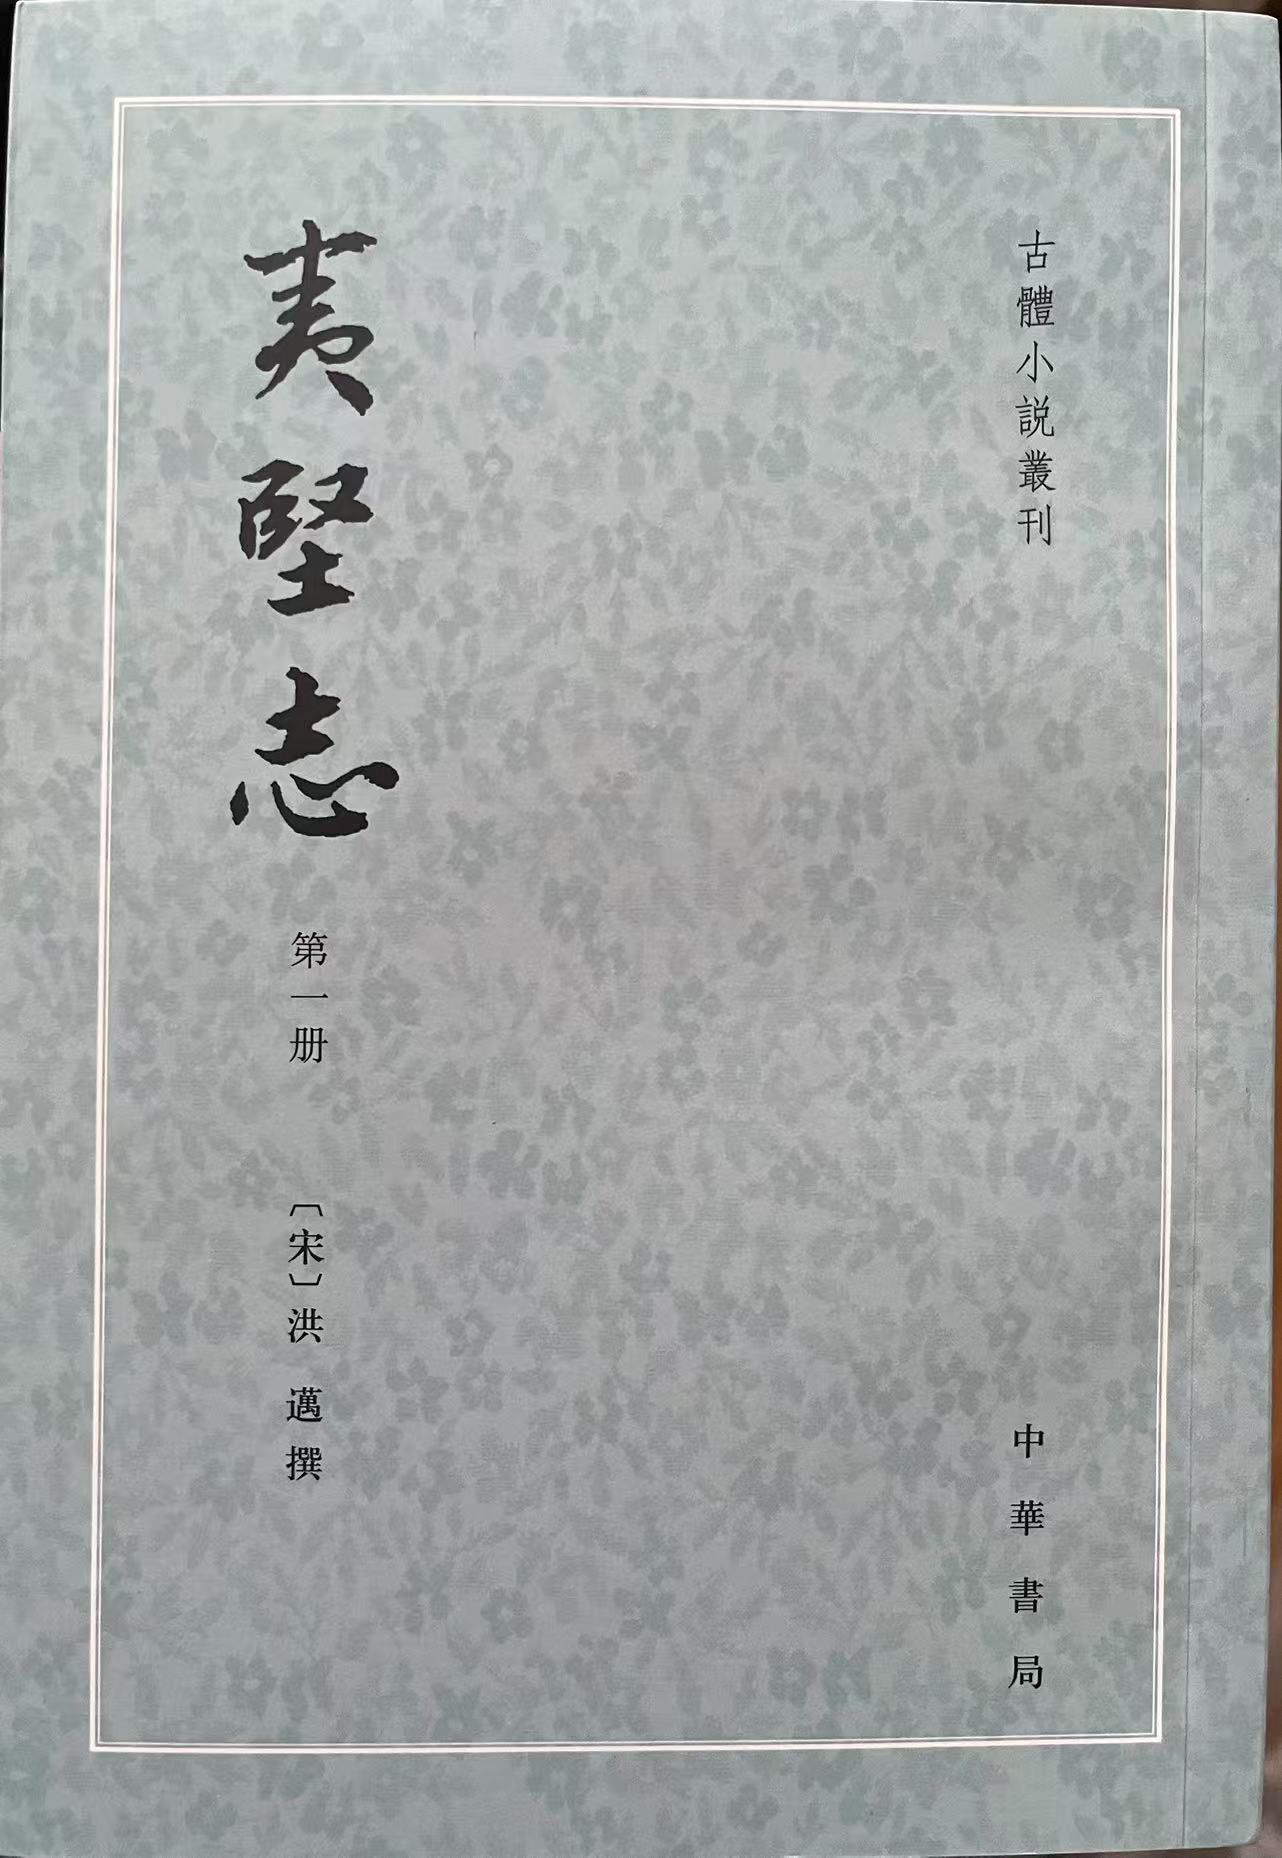 古體小説叢刊
中華書局
夷堅志
第一册
〔宋〕洪邁撰